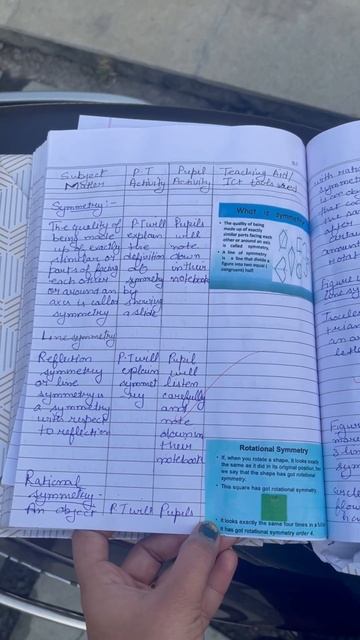 Subject Matter
P.T Activity
Pupil Activity
Teaching Aid/ ICT tools used
Symmetry:-
The quality of
being made
up of exactly
similar
parts of facing
each other
or around an
axis is called
symmetry
P.T will
explain
the
definition
of
symmetry
by
showing
a slide
Pupils
will
note
down
in their
notebook
What is symmetry
The quality of being
made up of exactly
similar parts facing
each other or around
an axis is called
symmetry.
A line of symmetry
is a line that divides a
figure into two equal (
congruent) half.
Line symmetry
Reflection
symmetry
or line
symmetry is
a symmetry
with respect
to reflection
P.T will
explain
symmet
ry
Pupil
will
listen
carefully
and
note
down in
their
notebook
Rotational Symmetry
If, when you rotate a shape, it looks exactly
the same as it did in its original position,
we say that the shape has got rotational
symmetry.
This square has got rotational symmetry.
It looks exactly the same four times in a
it has got rotational symmetry order 4.
Rational
symmetry-
An object
P.T will
Pupils